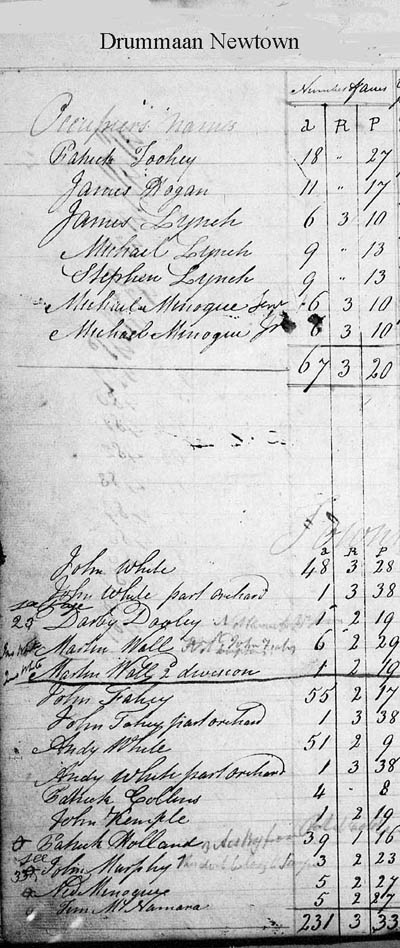 Drummaan Newtown
Number of acres
Occupiers names a R P
Patrick Toohey 18 " 27
James Hogan 11 " 17
James Lynch 6 3 10
Michael Lynch 9 " 13
Stephen Lynch 9 " 13
Michael Minogue Senr 6 3 10
Michael Minogue Jr 6 3 10
67 3 20
a R P
John White 48 3 28
John White part orchard 1 3 38
Darby Dooley 1 2 19
Martin Wall 6 2 29
Martin Wall 2d division 1 2 19
John Fahey 55 2 17
John Fahey part orchard 1 3 38
Andy White 51 2 9
Andy White part orchard 1 3 38
Patrick Collins 4 - 8
John Kemple 1 2 19
Patrick Holland 39 1 16
see John Murphy 3 2 23
Ned Minogue 5 2 27
Tim McNamara 5 2 27
231 3 33